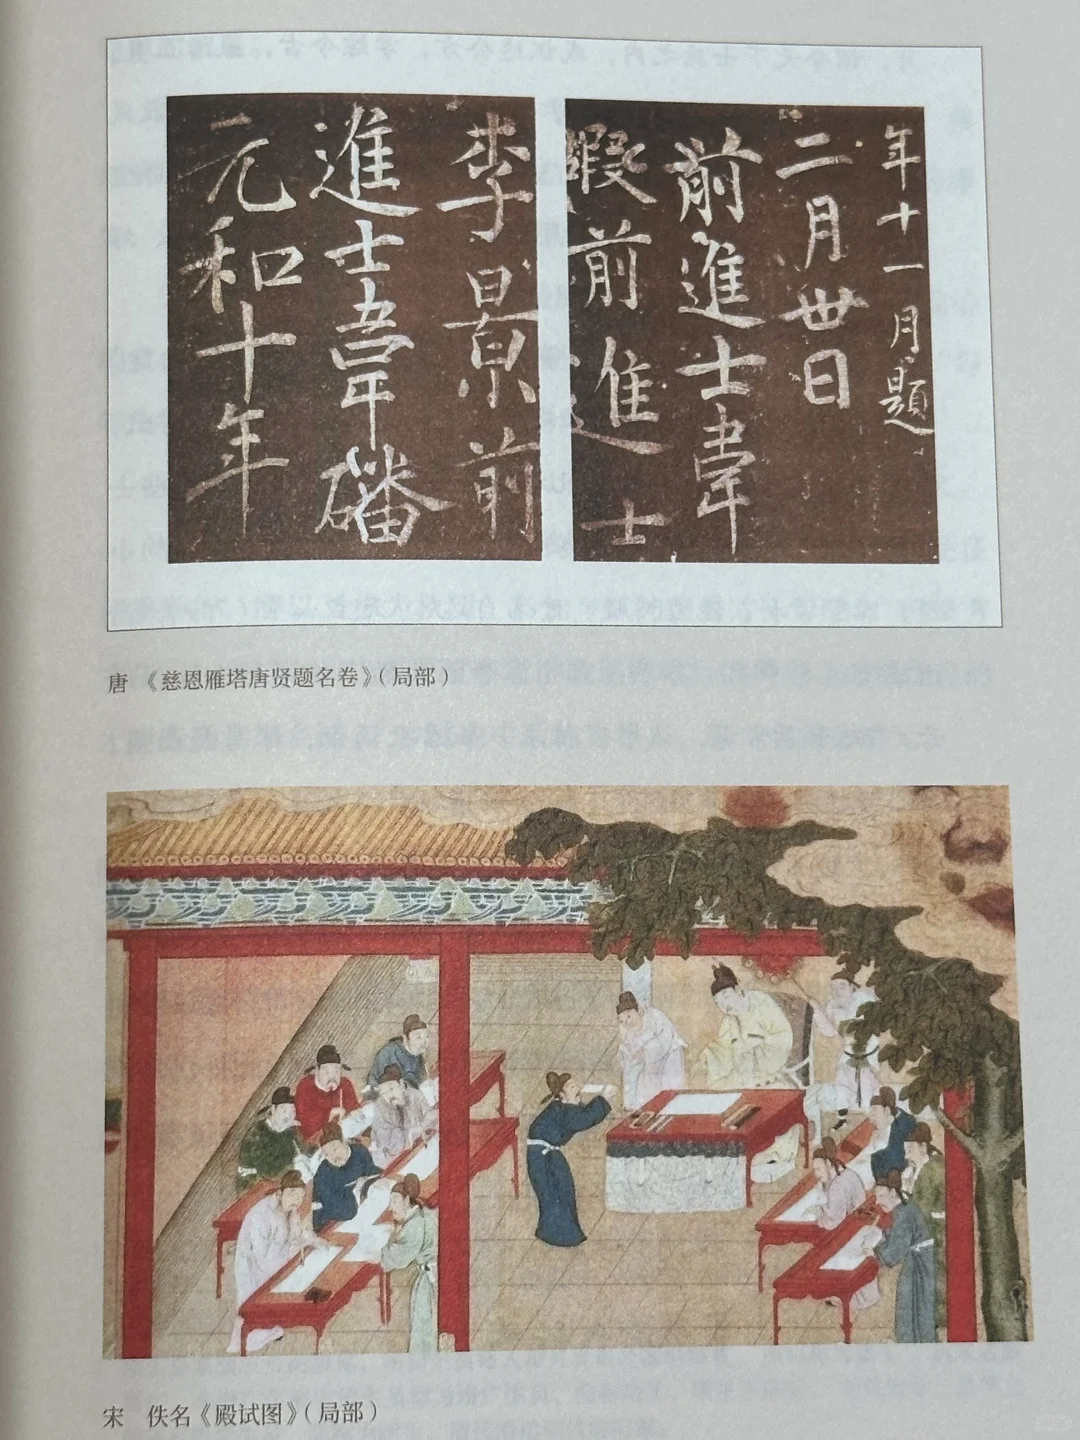 年十一月題
二月卅日
前進士韋
前進士
李景前
進士韋磻
元和十年
唐 《慈恩雁塔唐贤题名卷》（局部）
宋 佚名《殿试图》（局部）